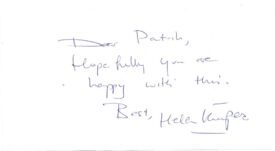 Dear Patrik,
Hopefully you are
happy with this.
Best, Helen